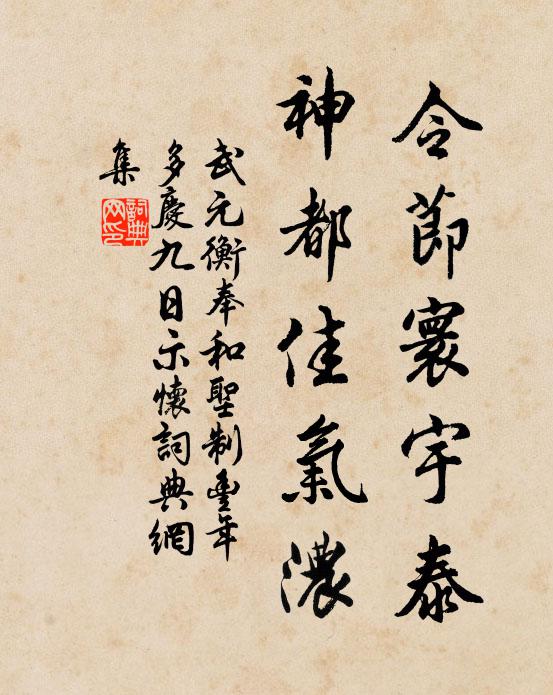 令節寰宇泰
神都佳氣濃
武元衡奉和聖制豐年
多慶九日示懷詞典網
集
詞典
网印